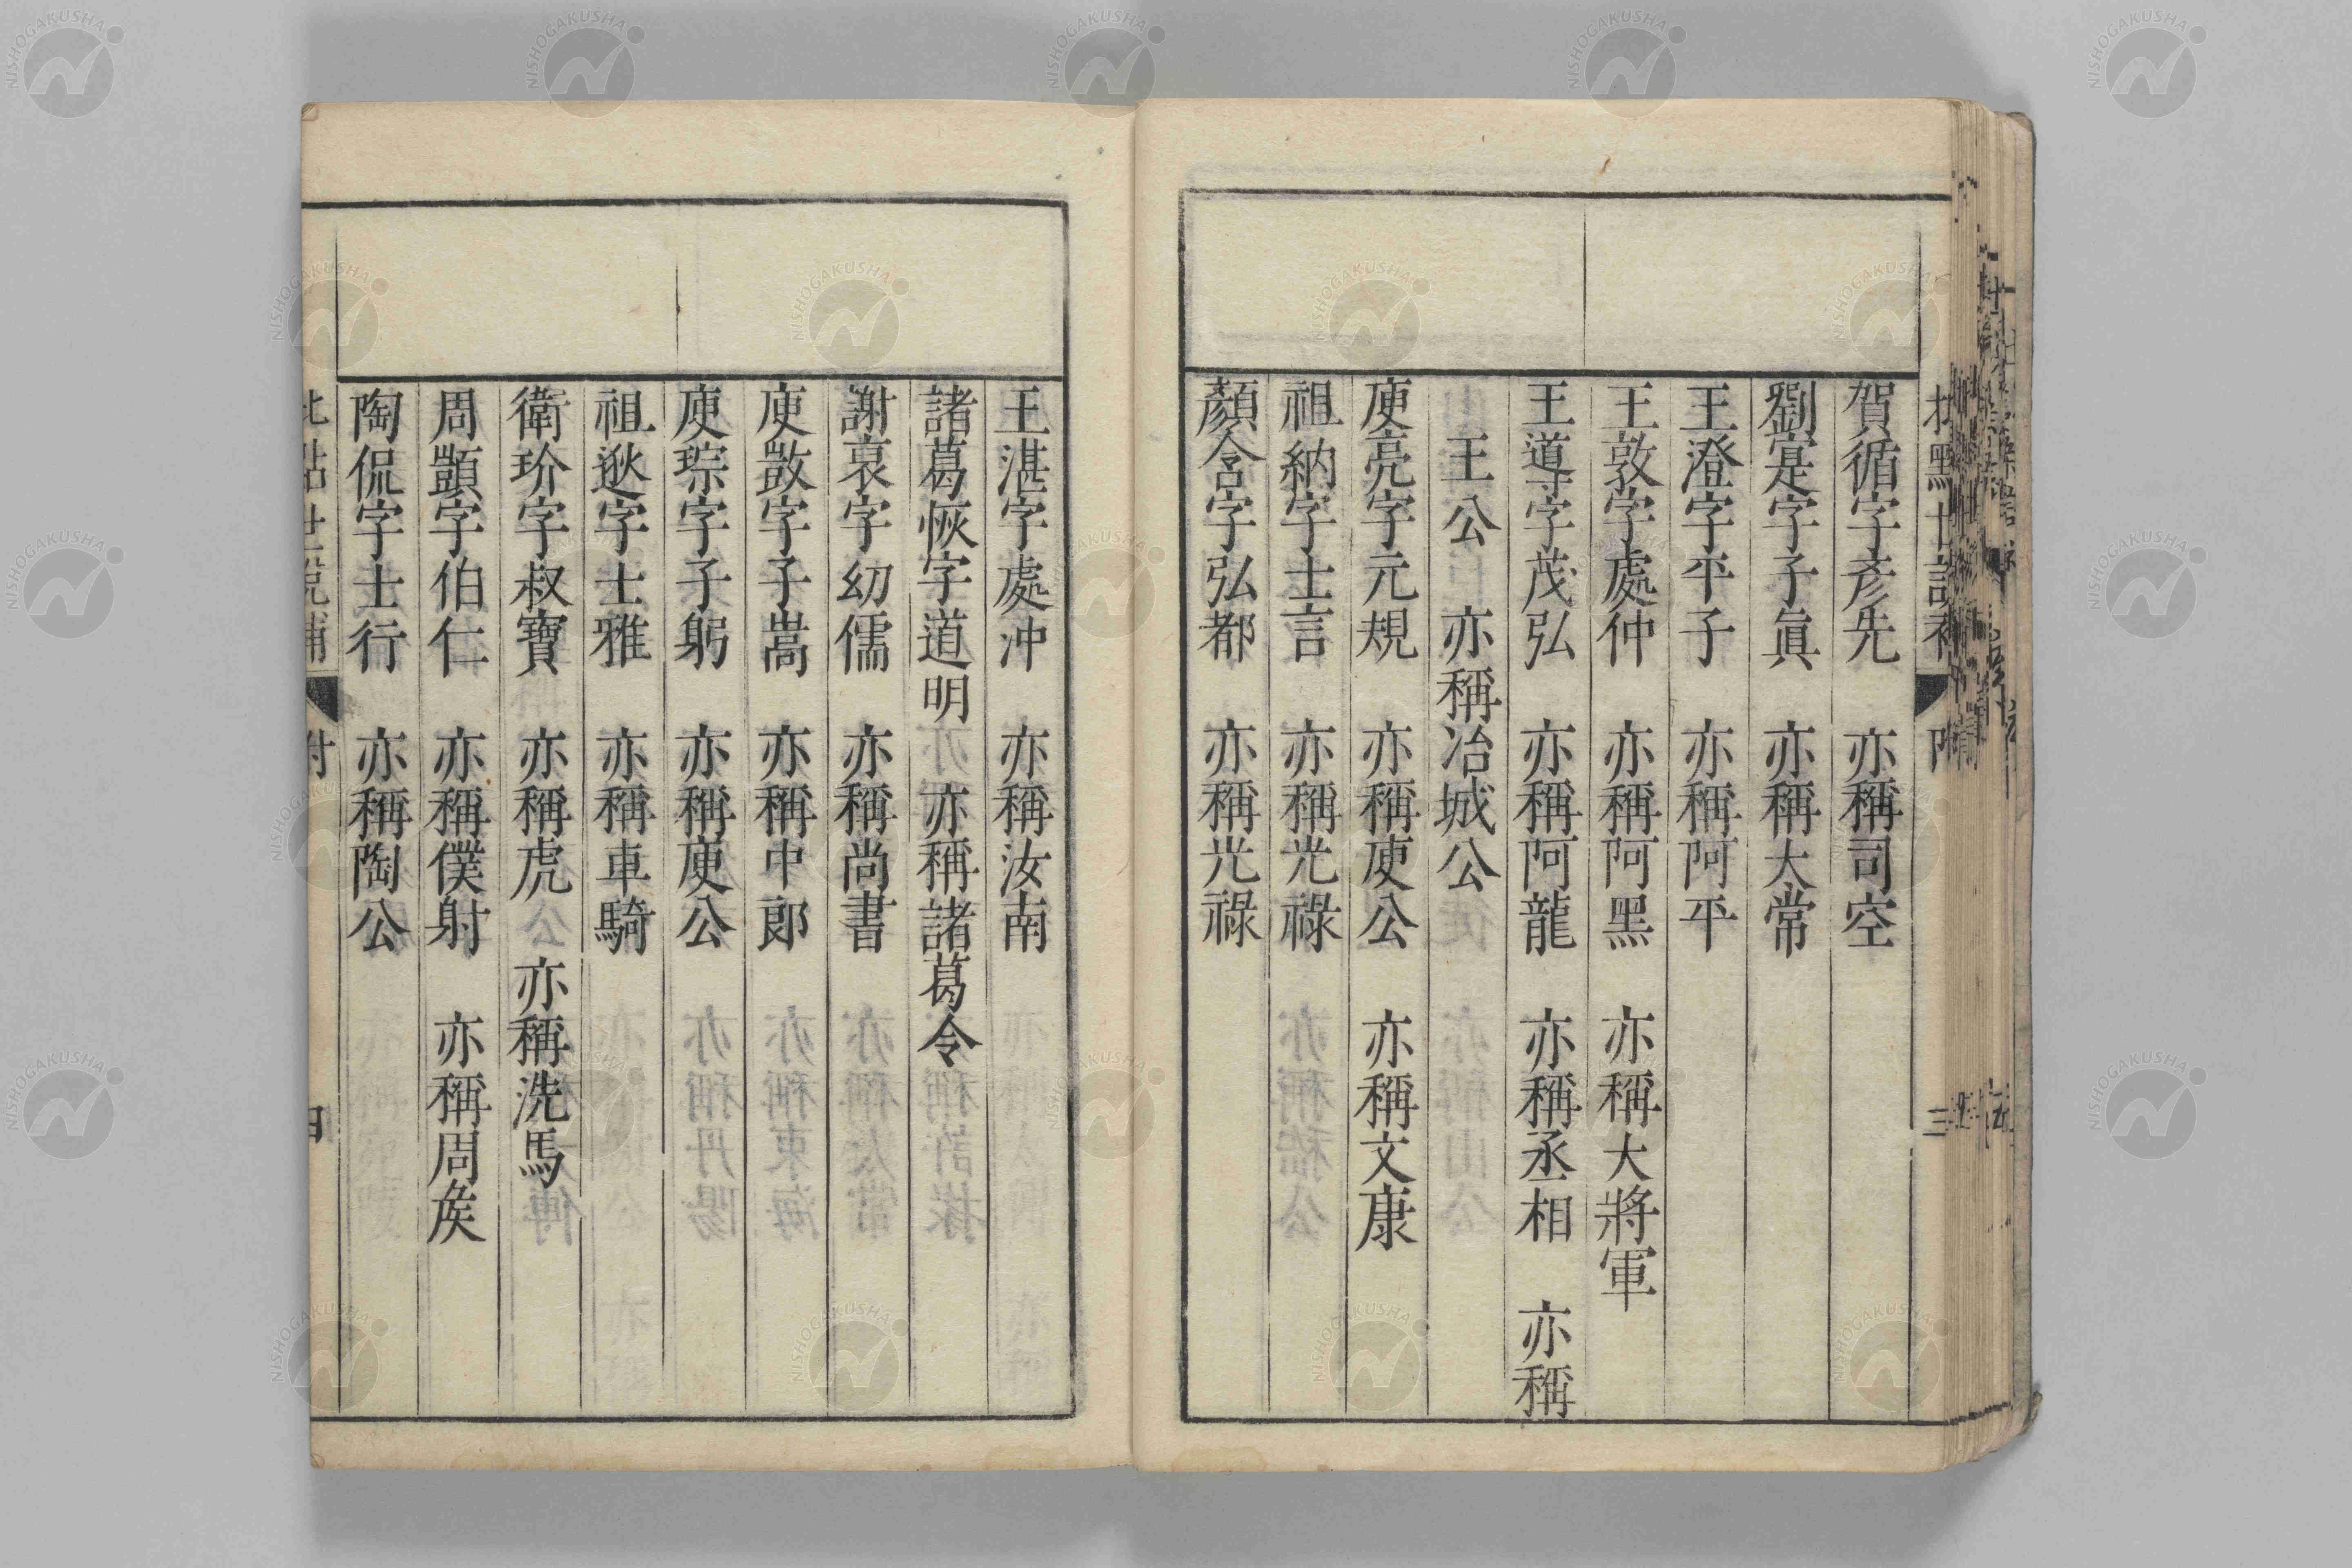 賀循字彥先　亦稱司空
劉寔字子眞　亦稱大常
王澄字平子　亦稱阿平
王敦字處仲　亦稱阿黑　亦稱大將軍
王導字茂弘　亦稱阿龍　亦稱丞相　亦稱
王公　亦稱冶城公
庾亮字元規　亦稱庾公　亦稱文康
祖納字士言　亦稱光祿
顏含字弘都　亦稱光祿
王湛字處沖　亦稱汝南
諸葛恢字道明　亦稱諸葛令
謝裒字幼儒　亦稱尚書
庾敳字子嵩　亦稱中郎
庾琮字子躬　亦稱庾公
祖逖字士雅　亦稱車騎
衛玠字叔寶　亦稱虎　亦稱洗馬
周顗字伯仁　亦稱僕射　亦稱周矦
陶侃字士行　亦稱陶公
NISHOGAKUSHA